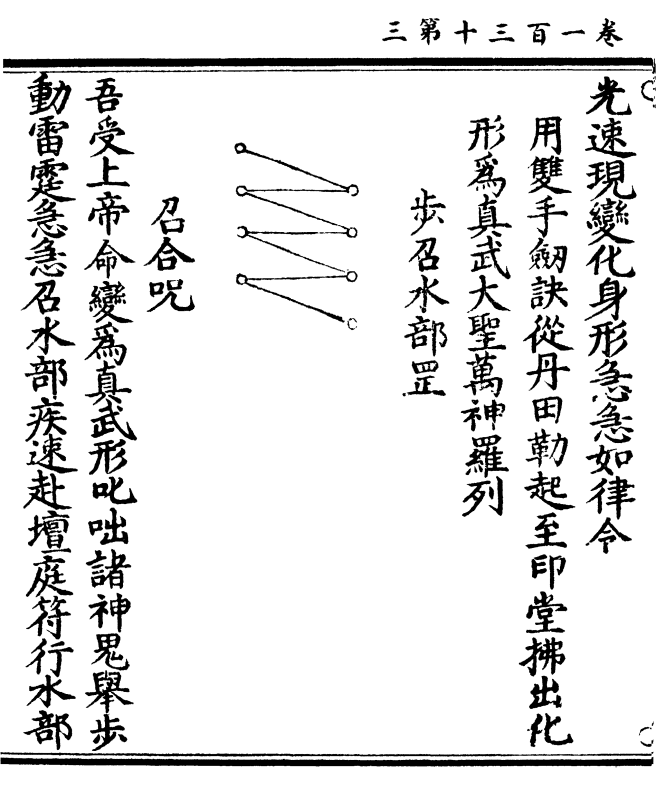 卷一百三十三第三
光速現變化身形急急如律令
用雙手劒訣從丹田勒起至印堂拂出化
形爲真武大聖萬神羅列
步召水部罡
召合呪
吾受上帝命變爲真武形叱咄諸神鬼舉步
動雷霆急急召水部疾速赴壇庭符行水部